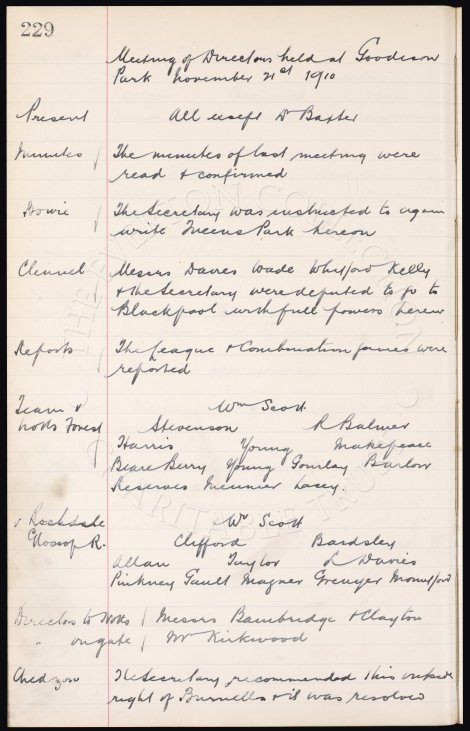 229
Meeting of Directors held at Goodison
Park November 21st 1910
Present All except Dr Baxter
Minutes The minutes of last meeting were
read & confirmed
Bowie The Secretary was instructed to again
write Queens Park hereon
Clennel Messrs Davies Wade Whitford Kelly
& the Secretary were deputed to go to
Blackpool with full powers herein
Reports The League & Combination games were
reported
Team v Wm Scott
Notts Forest Stevenson R Balmer
Harris Young Makepeace
Beare Berry Young Gourlay Barlow
Reserves Meunier Lacey
v Rochdale Wm Scott
Glossop R. Clifford Bardsley
Allan Taylor L Davies
Pinkney Gault Magner Grenyer Mountford
Directors to Notts Messrs Bainbridge & Clayton
" on gate Mr Kirkwood
The Secretary recommended this outside
right of Burnells & it was resolved
THE EVERTON COLLECTION CHARITABLE TRUST